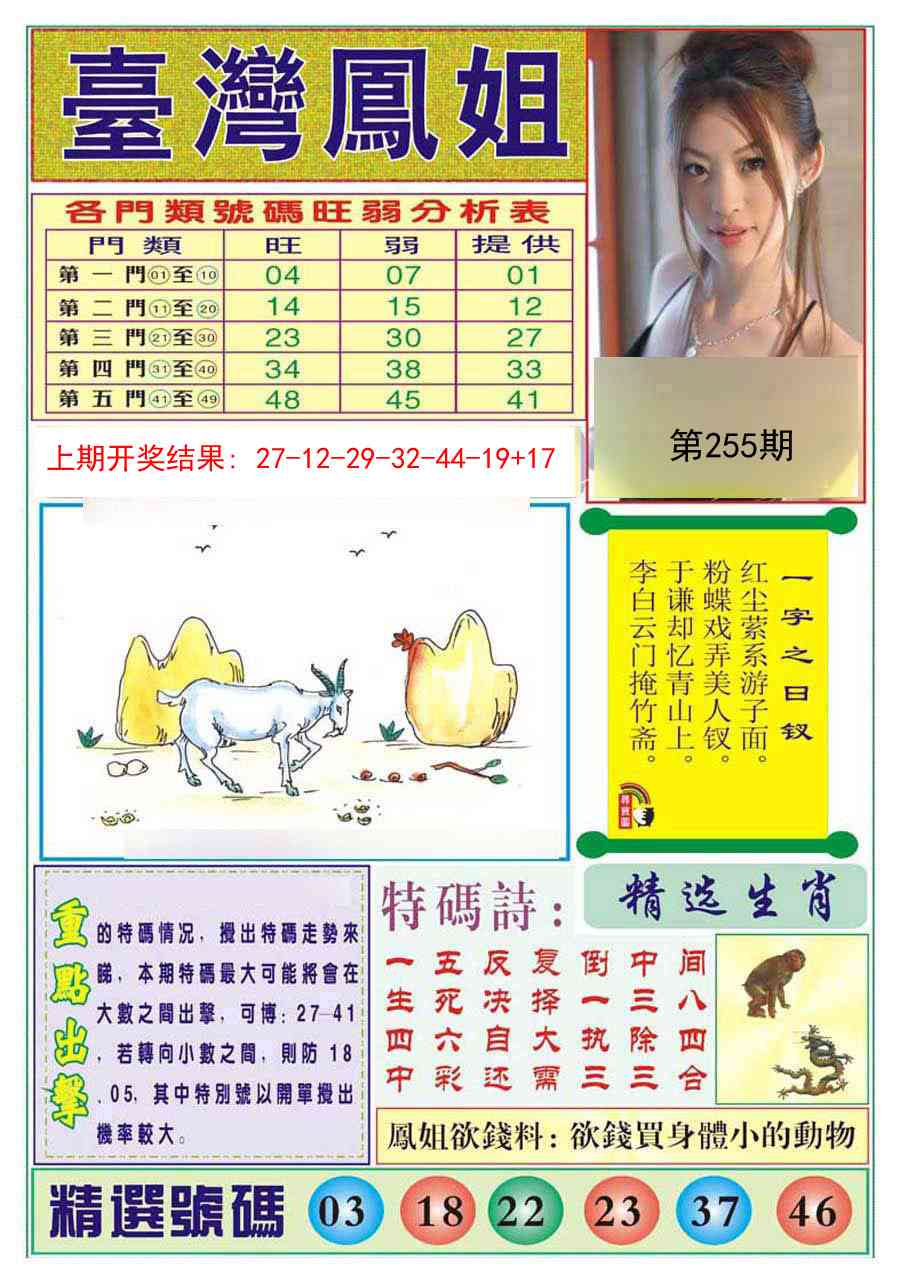 臺灣鳳姐
各門類號碼旺弱分析表
門類 旺 弱 提供
第一門01至10 04 07 01
第二門11至20 14 15 12
第三門21至30 23 30 27
第四門31至40 34 38 33
第五門41至49 48 45 41
第255期
上期开奖结果: 27-12-29-32-44-19+17
一字之曰钗
红尘萦系游子面。
粉蝶戏弄美人钗。
于谦却忆青山上。
李白云门掩竹斋。
重點出擊
的特碼情况, 攪出特碼走勢來
睇, 本期特碼最大可能將會在
大數之間出擊, 可博: 27-41
, 若轉向小數之間, 則防 18
.05, 其中特別號以開單攪出
機率較大。
特碼詩:
一五反复倒中间
生死决择一三八
四六自大执除四
中彩还需三三合
精选生肖
鳳姐欲錢料: 欲錢買身體小的動物
精選號碼 03 18 22 23 37 46